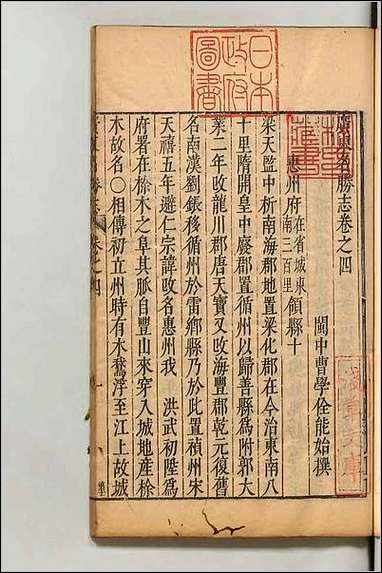 日本
政府
圖書
廣東名勝志卷之四
閩中曹學佺能始撰
惠州府在省城東南三百里領縣十
梁天監中析南海郡地置梁化郡在今治東南八
十里隋開皇中廢郡置循州以歸善縣爲附郭大
業二年改龍川郡唐天寶又改海豐郡乾元復舊
名南漢劉鋹移循州於雷鄉縣乃於此置禎州宋
天禧五年避仁宗諱改名惠州我 洪武初陞爲
府署在梌木之阜其脈自豐山來穿入城地産梌
木故名○相傳初立州時有木鵞浮至江上故城
淺草文庫